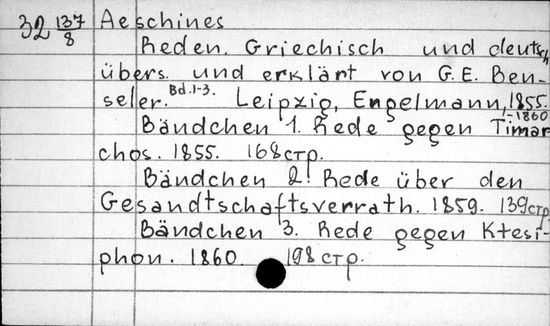 32 137/8 Aeschines
Reden. Griechisch und deutsch
übers. und erklärt von G. E. Ben-
seler. Bd. 1-3. Leipzig, Engelmann, 1855.
-1860
Bändchen 1. Rede gegen Timar
chos. 1855. 168 стр.
Bändchen 2. Rede über den
Gesandtschaftsverrath. 1859. 139 стр.
Bändchen 3. Rede gegen Ktesi-
phon. 1860. 198 стр.